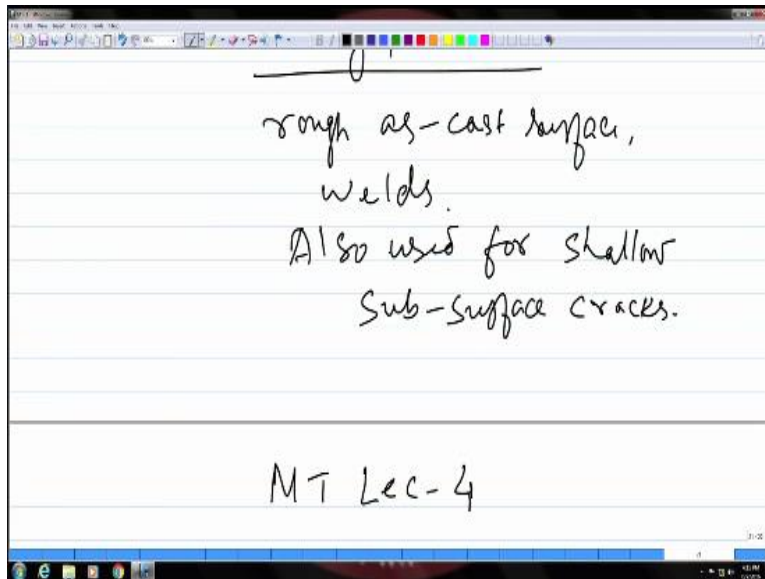 rough as-cast surface,
welds.
Also used for shallow
sub-surface cracks.
MT Lec-4